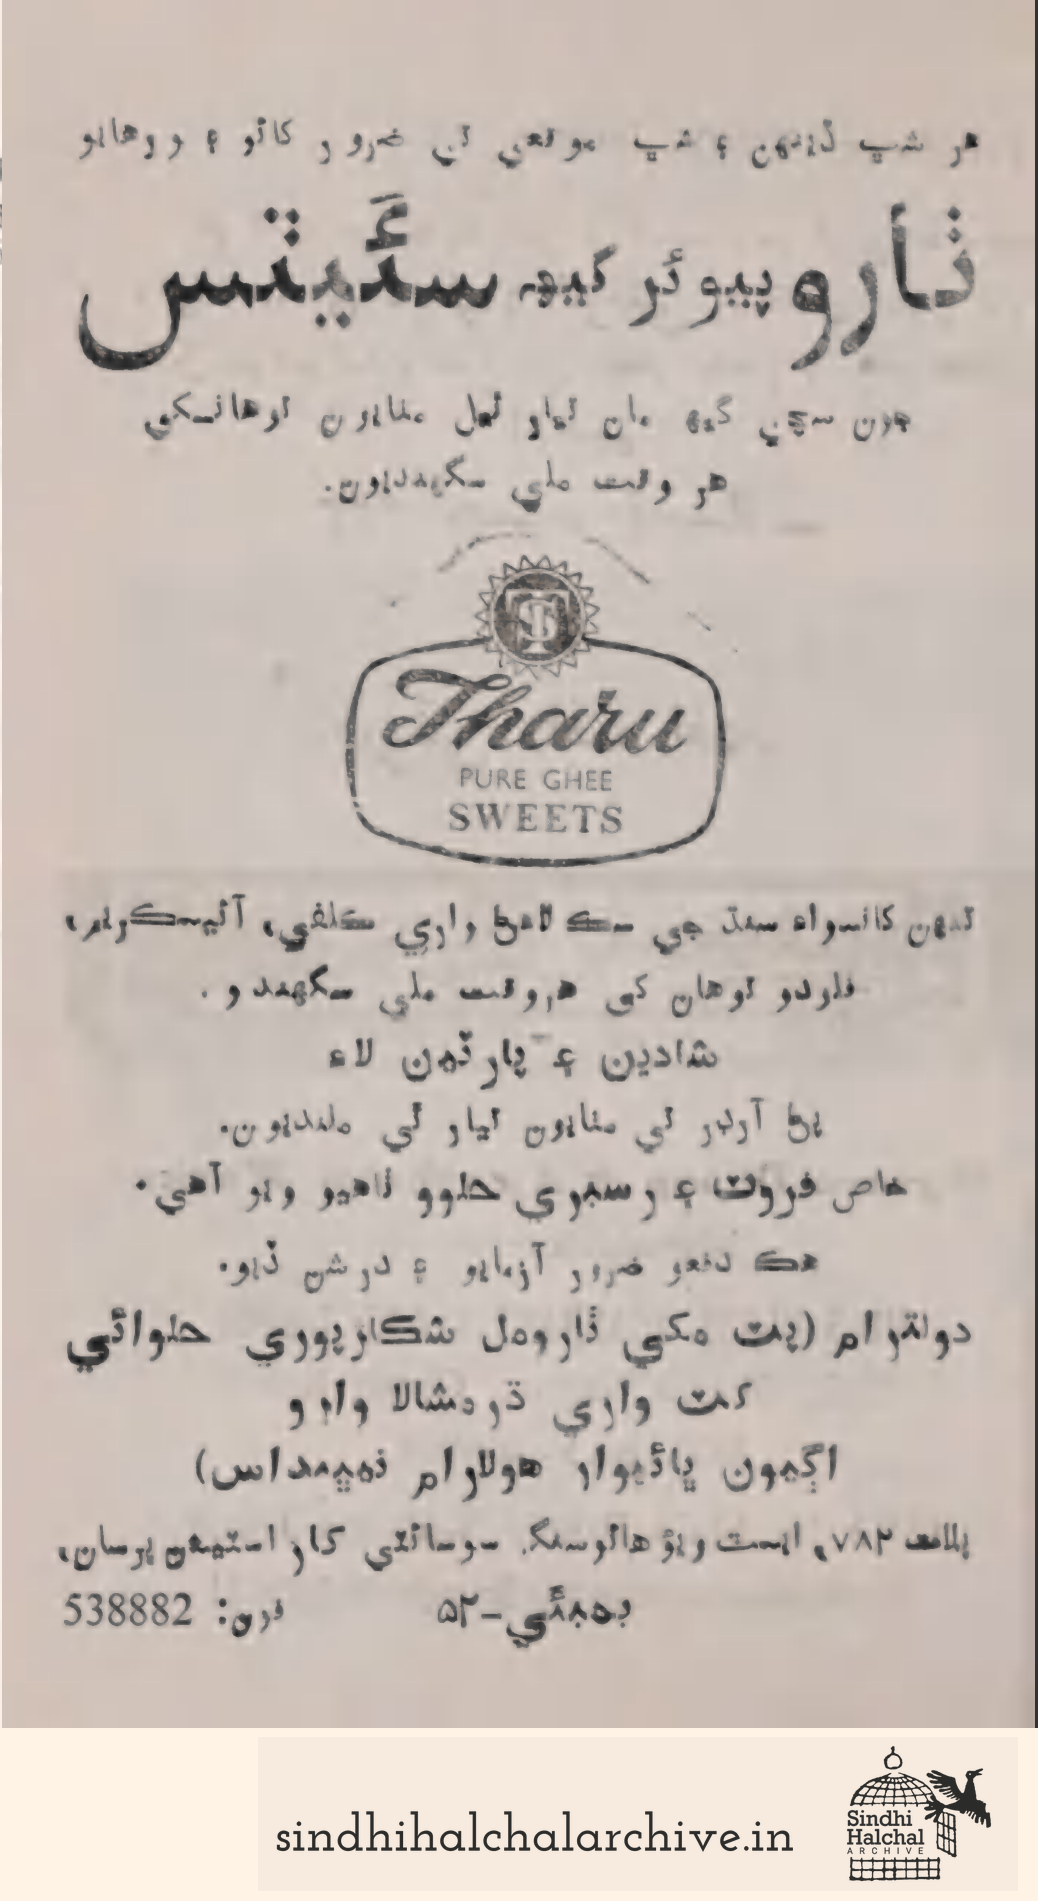 هر شڀ ڏينهن ۽ شڀ موقعي تي ضرور کائو ۽ ورهايو
ٿارو پيوئر گيهه سئيٽس
جون سچي گيهه مان تيار ٿيل مٺايون توهانکي
هر وقت ملي سگهنديون.
TS
Tharu
PURE GHEE
SWEETS
تنهن کانسواءِ سنڌ جي سڪ لاهڻ واري ڪلفي، آئيسڪريم،
فلودو توهان کي هر وقت ملي سگهندو.
شادين ۽ پارٽين لاءِ
پڻ آرڊر تي مٺايون تيار ٿي ملنديون.
خاص فروٽ ۽ رسبري حلوو ٺاهيو ويو آهي.
هڪ دفعو ضرور آزمايو ۽ درشن ڏيو.
دولترام (پٽ مکي ٿارومل شڪارپوري حلوائي
کٽ واري ڌرمشالا وارو
اڳيون ڀائيوار هولارام نيڀنداس)
پلاٽ ۷۸۲، ايسٽ ويو هائوسنگ سوسائٽي کار اسٽيشن ڀرسان،
بمبئي-۵۲ فون: 538882
sindhihalchalarchive.in
Sindhi
Halchal
ARCHIVE